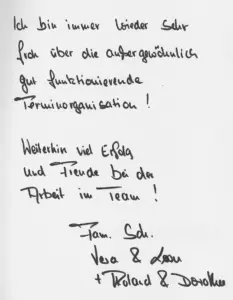 Ich bin immer wieder sehr
froh über die außergewöhnlich
gut funktionierende
Terminorganisation !
Weiterhin viel Erfolg
und Freude bei der
Arbeit im Team !
Fam. Sch.
Vera & Leon
+ Roland & Dorothee